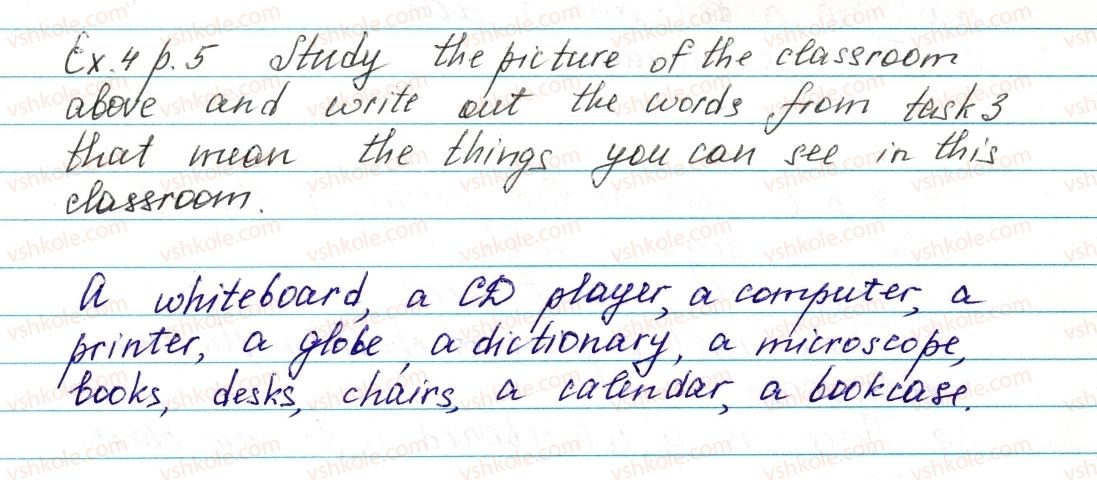 Ex. 4 p. 5 Study the picture of the classroom
above and write out the words from task 3
that mean the things you can see in this
classroom.
A whiteboard, a CD player, a computer, a
printer, a globe, a dictionary, a microscope,
books, desks, chairs, a calendar, a bookcase.